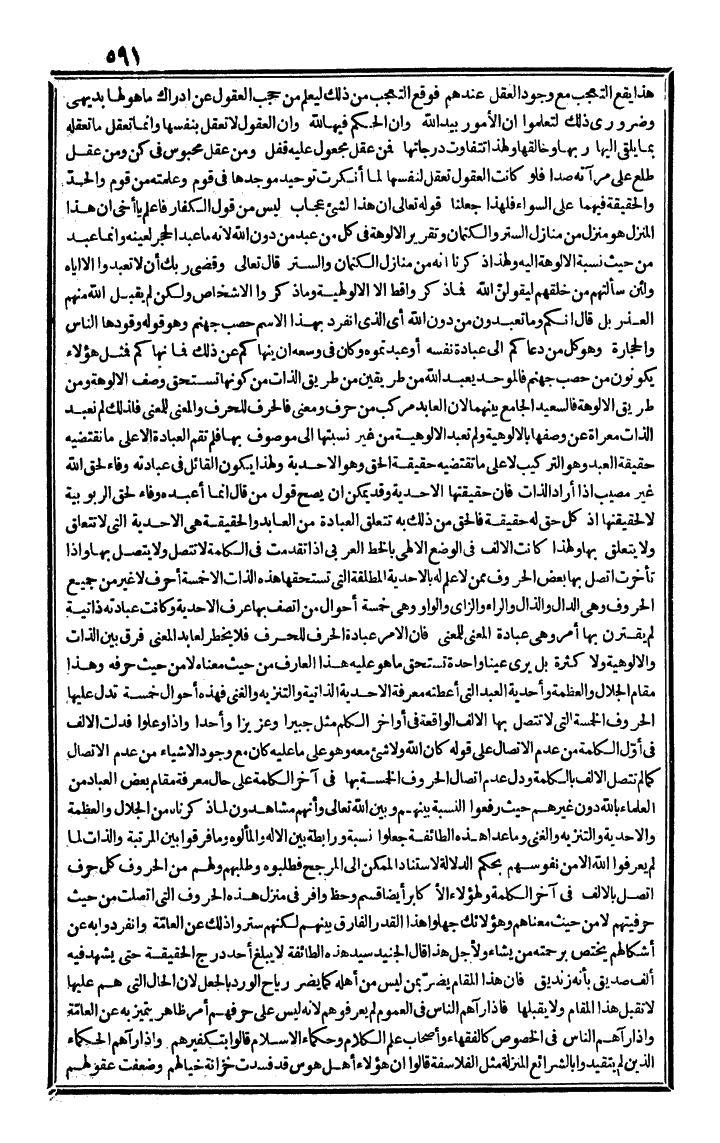 ٥٩١
هذا يقع التعجب مع وجود العقل عندهم فوقع التعجب من ذلك ليعلم من حجب العقول عن ادراك ما هو لها بديهى
وضرورى ذلك لتعلموا ان الأمور بيد الله وان الحكم فيها لله وان العقول لا تعقل بنفسها وانما تعقل ما تعقله
بما يلقى اليها ربها وخالقها ولهذا تتفاوت درجاتها فمن عقل مجعول عليه قفل ومن عقل محبوس فى كن ومن عقل
طلع على مرآته صدا فلو كانت العقول تعقل لنفسها لما أنكرت توحيد موجدها فى قوم وعلمته من قوم والحد
والحقيقة فيهما على السواء فلهذا جعلنا قوله تعالى ان هذا لشئ عجاب ليس من قول الكفار فاعلم يا أخى ان هذا
المنزل هو منزل من منازل الستر والكتمان وتقرير الالوهة فى كل من عبد من دون الله لانه ما عبد الحجر لعينه وانما عبد
من حيث نسبة الالوهة اليه ولهذا ذكرنا انه من منازل الكتمان والستر قال تعالى وقضى ربك أن لا تعبدوا الا اياه
ولئن سألتهم من خلقهم ليقولن الله فما ذكر واقط الا الالوهية وما ذكروا الاشخاص ولكن لم يقبل الله منهم
العذر بل قال انكم وما تعبدون من دون الله أى الذى انفرد بهذا الاسم حصب جهنم وهو قوله وقودها الناس
والحجارة وهو كل من دعاكم الى عبادة نفسه أو عبدتموه وكان فى وسعه ان ينهاكم عن ذلك فما نهاكم فمثل هؤلاء
يكونون من حصب جهنم فالموحد يعبد الله من طريقين من طريق الذات من كونها تستحق وصف الالوهة ومن
طريق الالوهة فالسعيد الجامع بينهما لان العابد مركب من حرف ومعنى فالحرف للحرف والمعنى للمعنى فلذلك لم نعبد
الذات معراة عن وصفها بالالوهية ولم نعبد الالوهية من غير نسبتها الى موصوف بها فلم تقم العبادة الا على ما تقتضيه
حقيقة العبد وهو التركيب لا على ما تقتضيه حقيقة الحق وهو الاحدية ولهذا يكون القائل فى عبادته وفاء لحق الله
غير مصيب اذا أراد الذات فان حقيقتها الاحدية وقد يمكن ان يصح قول من قال انما أعبده وفاء لحق الربوبية
لا لحقيقتها اذ كل حق له حقيقة فالحق من ذلك به تتعلق العبادة من العابد والحقيقة هى الاحدية التى لا تتعلق
ولا يتعلق بها ولهذا كانت الالف فى الوضع الالهى بالخط العربى اذا تقدمت فى الكلمة لا تتصل ولا يتصل بها واذا
تأخرت اتصل بها بعض الحروف ممن لا علم له بالاحدية المطلقة التى تستحقها هذه الذات الا خمسة أحرف لا غير من جميع
الحروف وهى الدال والذال والراء والزاى والواو وهى خمسة أحوال من اتصف بها عرف الاحدية وكانت عبادته ذاتية
لم يقترن بها أمر وهى عبادة المعنى للمعنى فان الامر عبادة الحرف للحرف فلا يخطر لعابد المعنى فرق بين الذات
والالوهية ولا كثرة بل يرى عينا واحدة تستحق ما هو عليه هذا العارف من حيث معناه لا من حيث حرفه وهذا
مقام الجلال والعظمة وأحدية العبد التى أعطته معرفة الاحدية الذاتية والتنزيه والغنى فهذه أحوال خمسة تدل عليها
الحروف الخمسة التى لا تتصل بها الالف الواقعة فى أواخر الكلم مثل جبيرا وعزيزا وأحدا واذا وعلوا فدلت الالف
فى أول الكلمة من عدم الاتصال على قوله كان الله ولا شئ معه وهو على ما عليه كان مع وجود الاشياء من عدم الاتصال
كما لم تتصل الالف بالكلمة ودل عدم اتصال الحروف الخمسة بها فى آخر الكلمة على حال معرفة مقام بعض العباد من
العلماء بالله دون غيرهم حيث رفعوا النسبة بينهم وبين الله تعالى وأنهم مشاهدون لما ذكرناه من الجلال والعظمة
والاحدية والتنزيه والغنى وما عدا هذه الطائفة جعلوا نسبة ورابطة بين الاله والمألوه وما فرقوا بين المرتبة والذات لما
لم يعرفوا الله الا من نفوسهم بحكم الدلالة لاستناد الممكن الى المرجح فطلبوه وطلبهم ولهم من الحروف كل حرف
اتصل بالالف فى آخر الكلمة ولهؤلاء الأكابر أيضا قسم وحظ وافر فى منزل هذه الحروف التى اتصلت من حيث
حرفيتهم لا من حيث معناهم وهؤلائك جهلوا هذا القدر الفارق بينهم لكنهم ستروا ذلك عن العامة وانفردوا به عن
أشكالهم يختص برحمته من يشاء ولأجل هذا قال الجنيد سيد هذه الطائفة لا يبلغ أحد درج الحقيقة حتى يشهد فيه
ألف صديق بأنه زنديق فان هذا المقام يضر بمن ليس من أهله كما يضر رياح الورد بالجعل لان الحال التى هم عليها
لا تقبل هذا المقام ولا يقبلها فاذا رآهم الناس فى العموم لم يعرفوهم لانه ليس على حرفهم أمر ظاهر يتميز به عن العامة
واذا رآهم الناس فى الخصوص كالفقهاء وأصحاب علم الكلام وحكماء الاسلام قالوا بتكفيرهم واذا رآهم الحكماء
الذين لم يتقيدوا بالشرائع المنزلة مثل الفلاسفة قالوا ان هؤلاء أهل هوس قد فسدت خزانة خيالهم وضعفت عقولهم